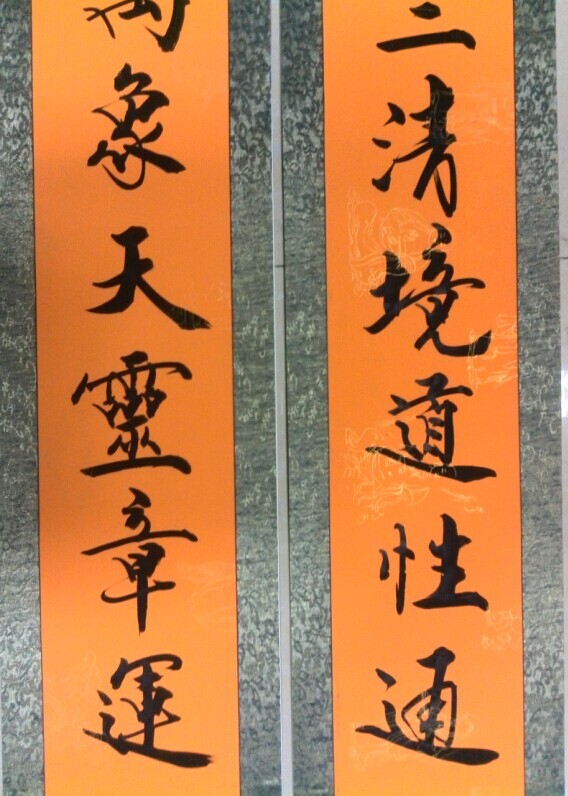 三清境道性通
萬象天靈章運